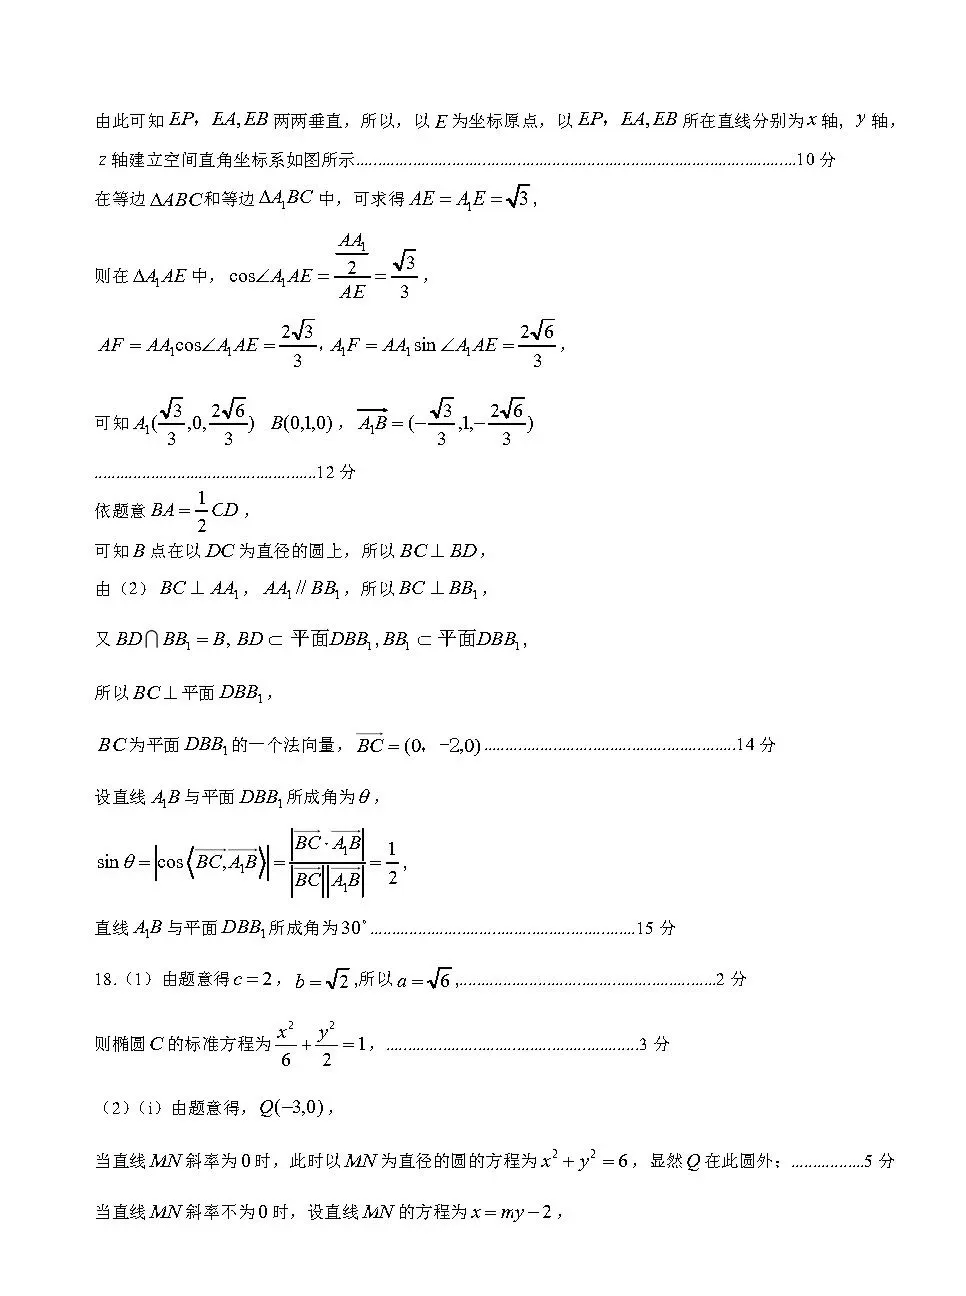 由此可知 EP，EA, EB 两两垂直，所以，以 E 为坐标原点，以 EP，EA, EB 所在直线分别为 x 轴, y 轴，
z 轴建立空间直角坐标系如图所示......................................................................................................10 分
在等边 ΔABC 和等边 ΔA₁BC 中，可求得 AE = A₁E = √3，
则在 ΔA₁AE 中，cos∠A₁AE = (AA₁/2)/AE = √3/3，
AF = AA₁cos∠A₁AE = 2√3/3, A₁F = AA₁ sin ∠A₁AE = 2√6/3，
可知 A₁(√3/3,0,2√6/3) B(0,1,0)，A₁B→ = (−√3/3,1,−2√6/3)
...................................................12 分
依题意 BA = 1/2 CD，
可知 B 点在以 DC 为直径的圆上，所以 BC ⊥ BD，
由（2）BC ⊥ AA₁，AA₁ // BB₁，所以 BC ⊥ BB₁，
又 BD ∩ BB₁ = B, BD ⊂ 平面DBB₁, BB₁ ⊂ 平面DBB₁,
所以 BC ⊥ 平面 DBB₁，
BC 为平面 DBB₁ 的一个法向量，BC→ = (0，-2,0)..........................................................14 分
设直线 A₁B 与平面 DBB₁ 所成角为 θ，
sin θ = |cos⟨BC→, A₁B→⟩| = |BC→ · A₁B→| / |BC→||A₁B→| = 1/2，
直线 A₁B 与平面 DBB₁ 所成角为 30°.............................................................15 分
18.（1）由题意得 c = 2，b = √2 ,所以 a = √6 ,...........................................................2 分
则椭圆 C 的标准方程为 x²/6 + y²/2 = 1，..........................................................3 分
（2）（i）由题意得，Q(−3,0)，
当直线 MN 斜率为 0 时，此时以 MN 为直径的圆的方程为 x² + y² = 6，显然 Q 在此圆外；.................5 分
当直线 MN 斜率不为 0 时，设直线 MN 的方程为 x = my − 2，